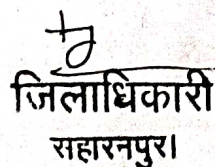 जिलाधिकारी
सहारनपुर।